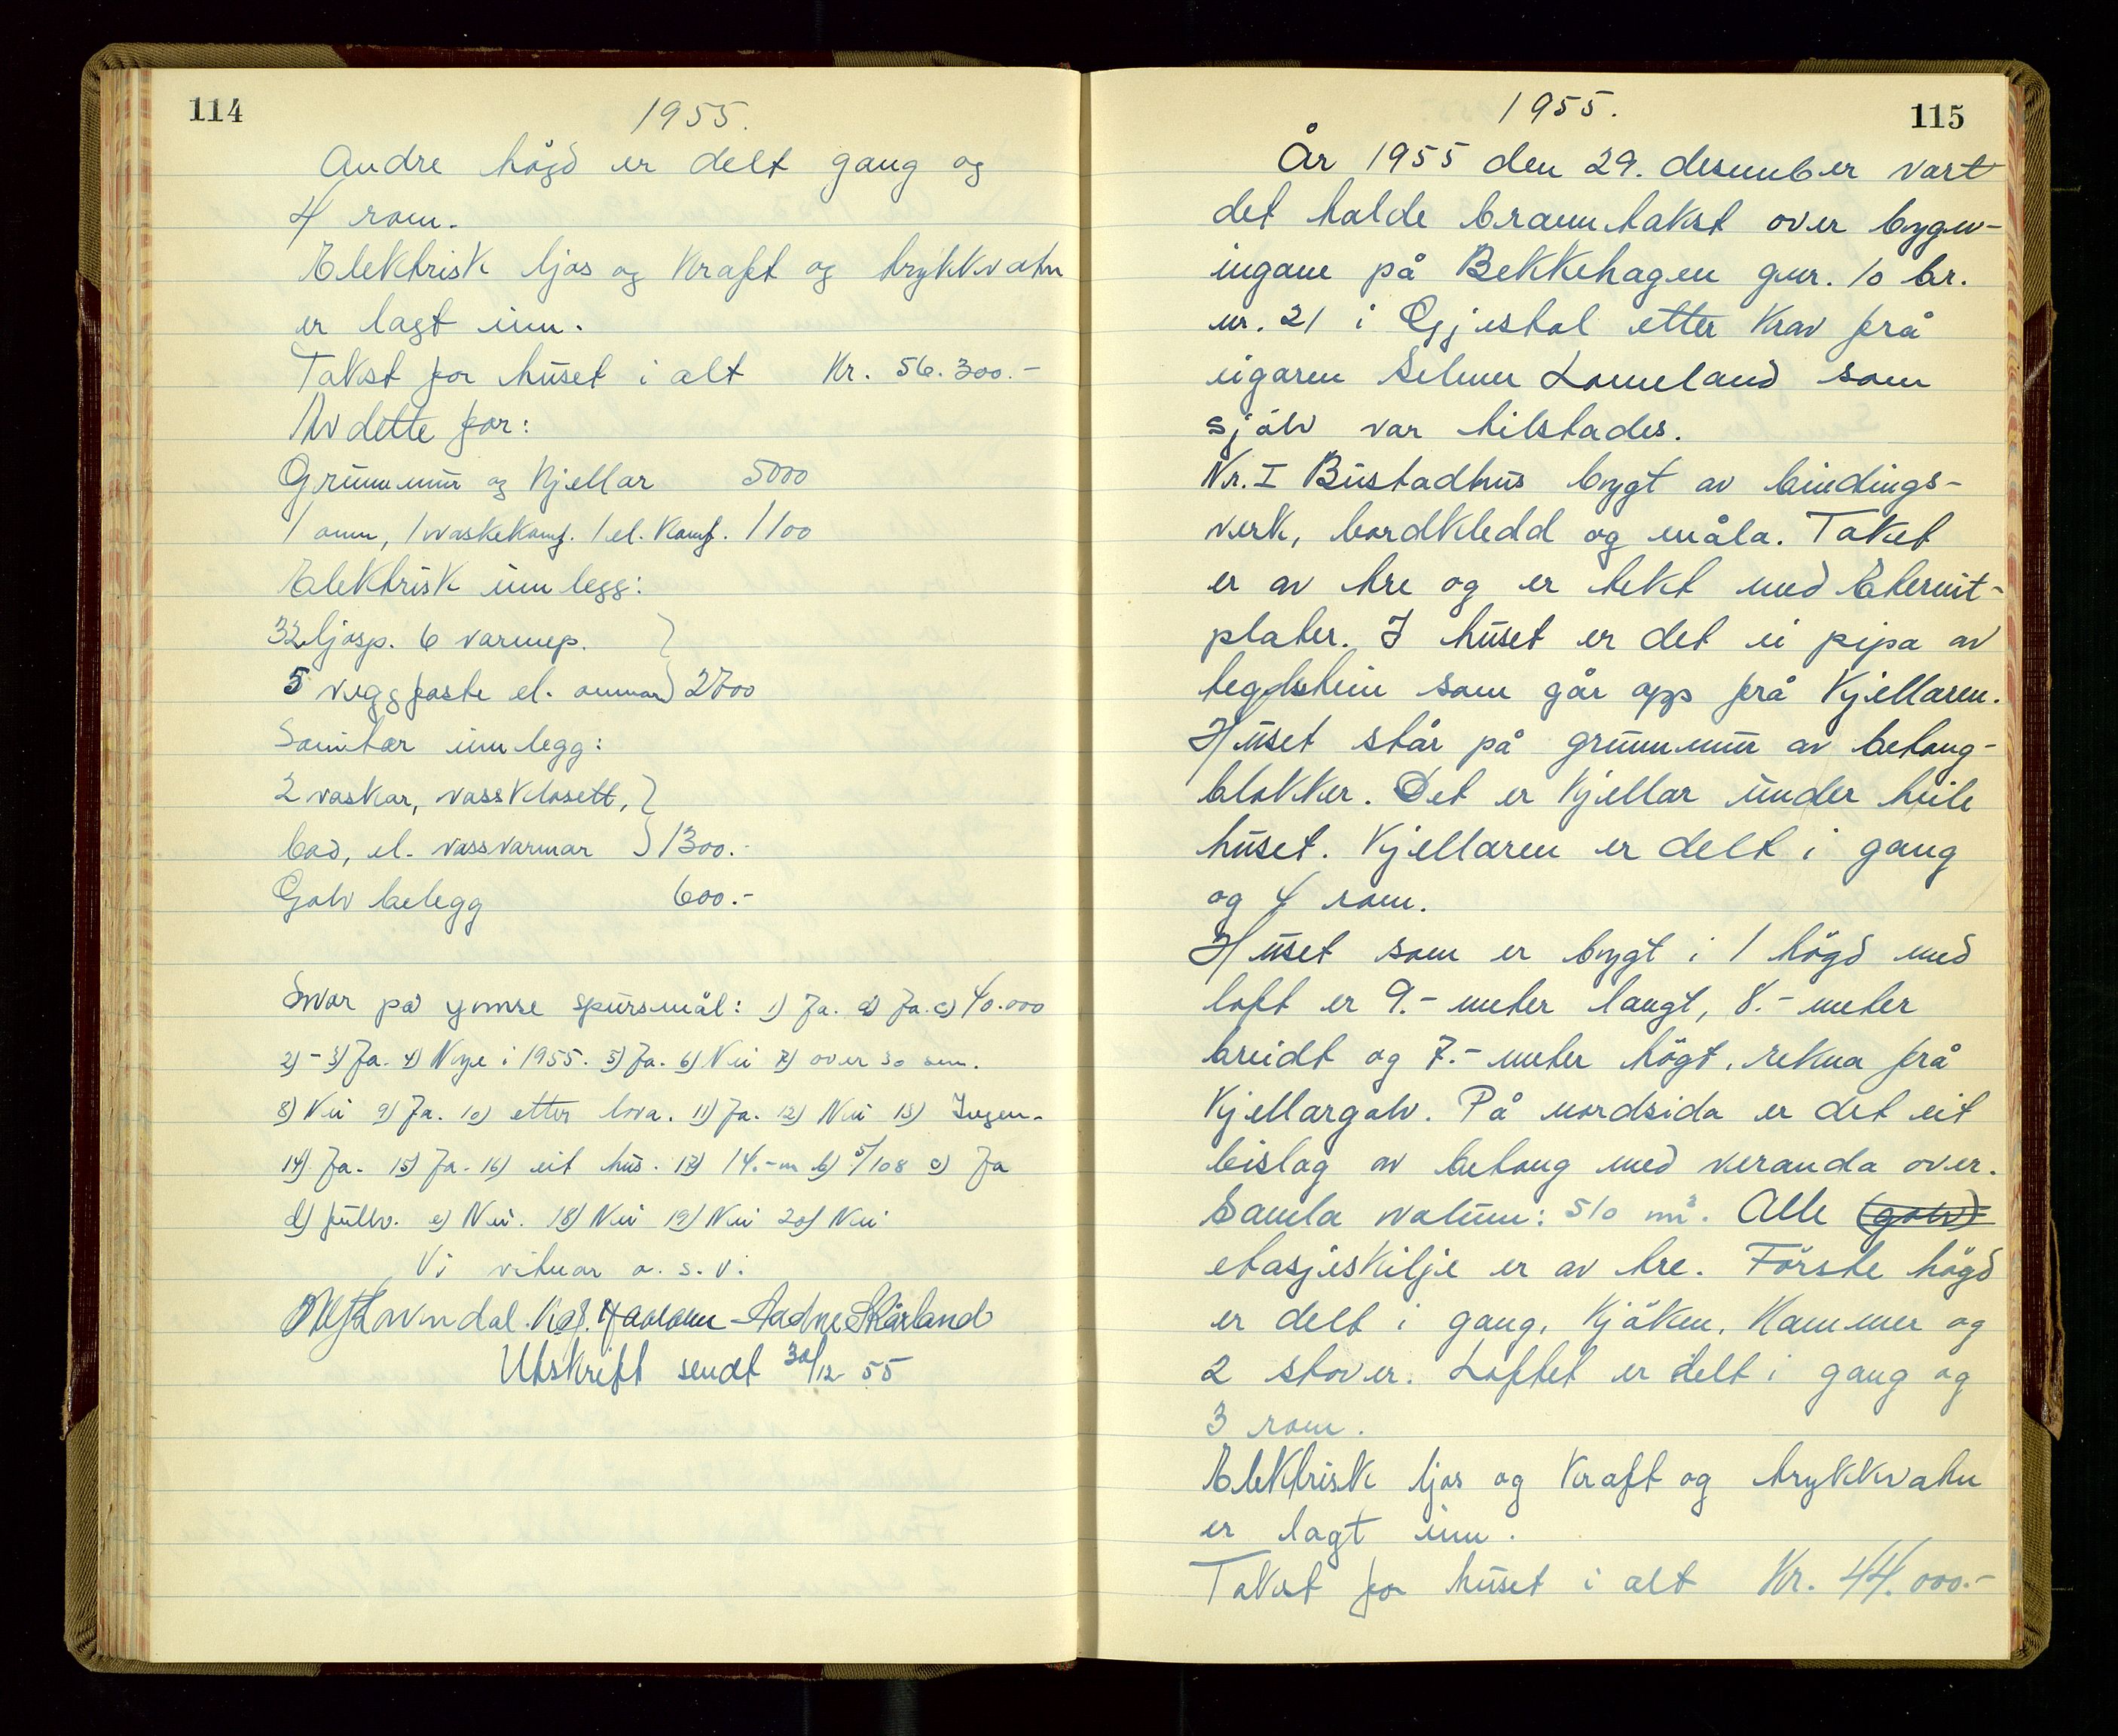 114
1955.
Andre högd er delt gang og
4 rom.
Elektrisk ljos og kraft og trykkvatn
er lagt inn.
Takst for huset i alt Kr. 56.300.-
Av dette for:
Grunnmur og Kjellar 5000
1 omn, 1 vaskekomf. 1 el. Komf. 1100
Elektrisk innlegg:
32 ljosp. 6 varmep.
5 veggfaste el. omnar 2700
Sanitær innlegg:
2 vaskar, vassklosett,
bad, el. vassvarmar 1300.-
Golvbelegg 600.-
Svar på ymse spursmål: 1) Ja. d) Ja. c) 40.000
2) - 3) Ja. 4) Nye i 1955. 5) Ja. 6) Nei 7) over 30 cm.
8) Nei 9) Ja. 10) etter lova. 11) Ja. 12) Nei 13) Ingen.
14) Ja. 15) Ja. 16) eit hus. 17) 14.-m b) 5/108 c) Ja
d) fullv. e) Nei. 18) Nei 19) Nei 20) Nei
Vi vitnar o. s. v.
Aadne Skårland
Utskrift sendt 30/12 55
1955.
115
År 1955 den 29. desember vart
det halde branntakst over bygn-
ingane på Bekkehagen gnr. 10 br.
nr. 21 i Gjestal etter krav frå
eigaren Selmer Lomeland som
sjölv var tilstades.
Nr. I Bustadhus bygt av bindings-
verk, bordkledd og måla. Taket
er av tre og er tekt med Eternit-
plater. I huset er det ei pipa av
teglstein som går opp frå Kjellaren.
Huset står på grunnmur av betong-
blokker. Det er Kjellar under heile
huset. Kjellaren er delt i gang
og 4 rom.
Huset som er bygt i 1 högd med
loft er 9.- meter langt, 8.- meter
breidt og 7.- meter högt, rekna frå
Kjellargolv. På nordsida er det eit
bislag av betong med veranda over.
Samla volum: 510 m³. Alle (golv)
etasjeskilje er av tre. Förste högd
er delt i gang, Kjöken, Kammer og
2 stover. Loftet er delt i gang og
3 rom.
Elektrisk ljos og kraft og trykkvatn
er lagt inn.
Takst for huset i alt Kr. 44.000.-